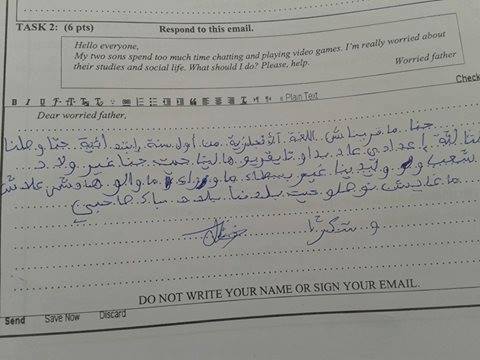 TASK 2: (6 pts) Respond to this email.
Hello everyone,
My two sons spend too much time chatting and playing video games. I'm really worried about
their studies and social life. What should I do? Please, help.
Worried father
Check
Plain Text
Dear worried father,
حنا ما قريناش اللغة الأنجليزية من أول سنة ابتدائية حتا وصلنا
ثالثة إعدادي عاد بداو تايقريو هالينا حيت حنا غير ولاد
شعب و والدينا غير بسطاء ما وراء ما والو هدوشي علاش
ما عاديش توصلو حيت بلدنا بلد
و شكرا
DO NOT WRITE YOUR NAME OR SIGN YOUR EMAIL.
Send Save Now Discard